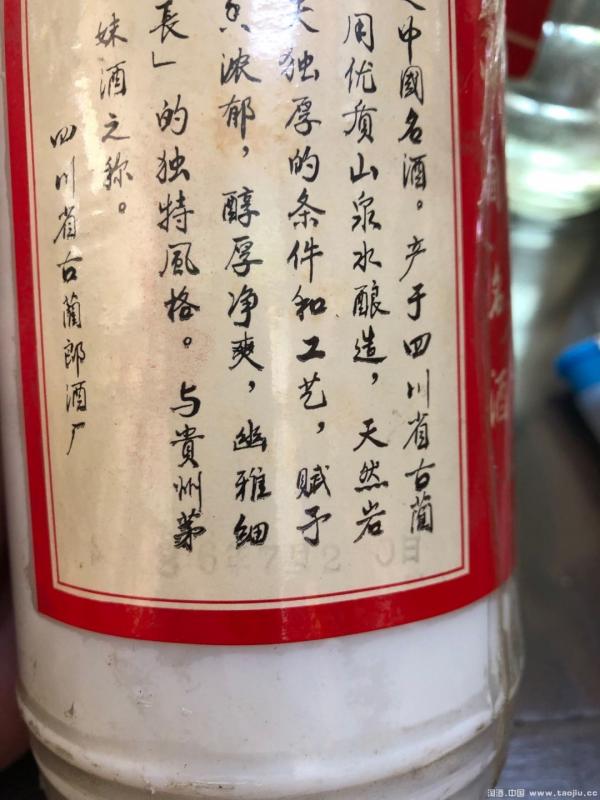 中國名酒。产于四川省古藺
用优质山泉水酿造，天然岩
独厚的条件和工艺，赋予
浓郁，醇厚净爽，幽雅细
長」的独特風格。与貴州茅
妹酒之称。
四川省古藺郎酒厂
名酒
日
淘酒.中国 www.taojiu.cc